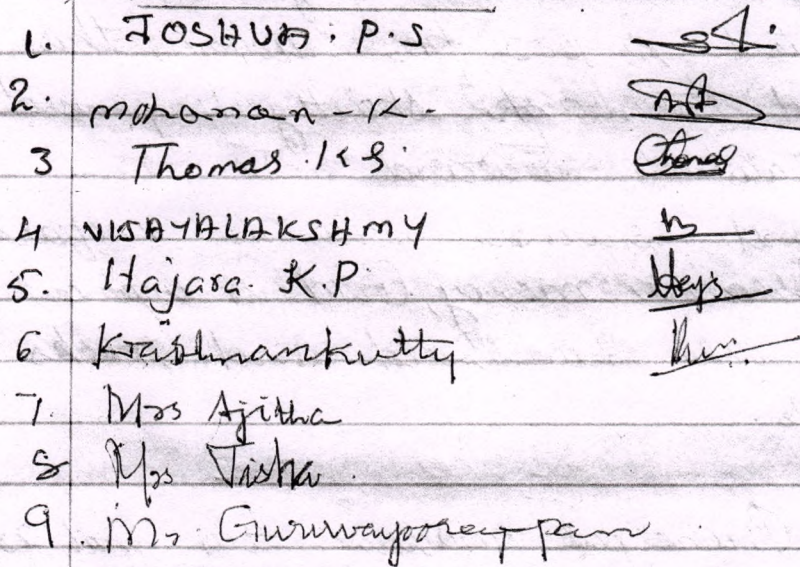 1. JOSHUA. P.S
2. Mohanan - K.
3 Thomas. K S. Thomas
4 VIJAYALAKSHMY
5. Hajara. K.P.
6 Krishnankutty
7. Mrs Ajitha
8 Mrs Jisha.
9. Mr Guruvayoorappan